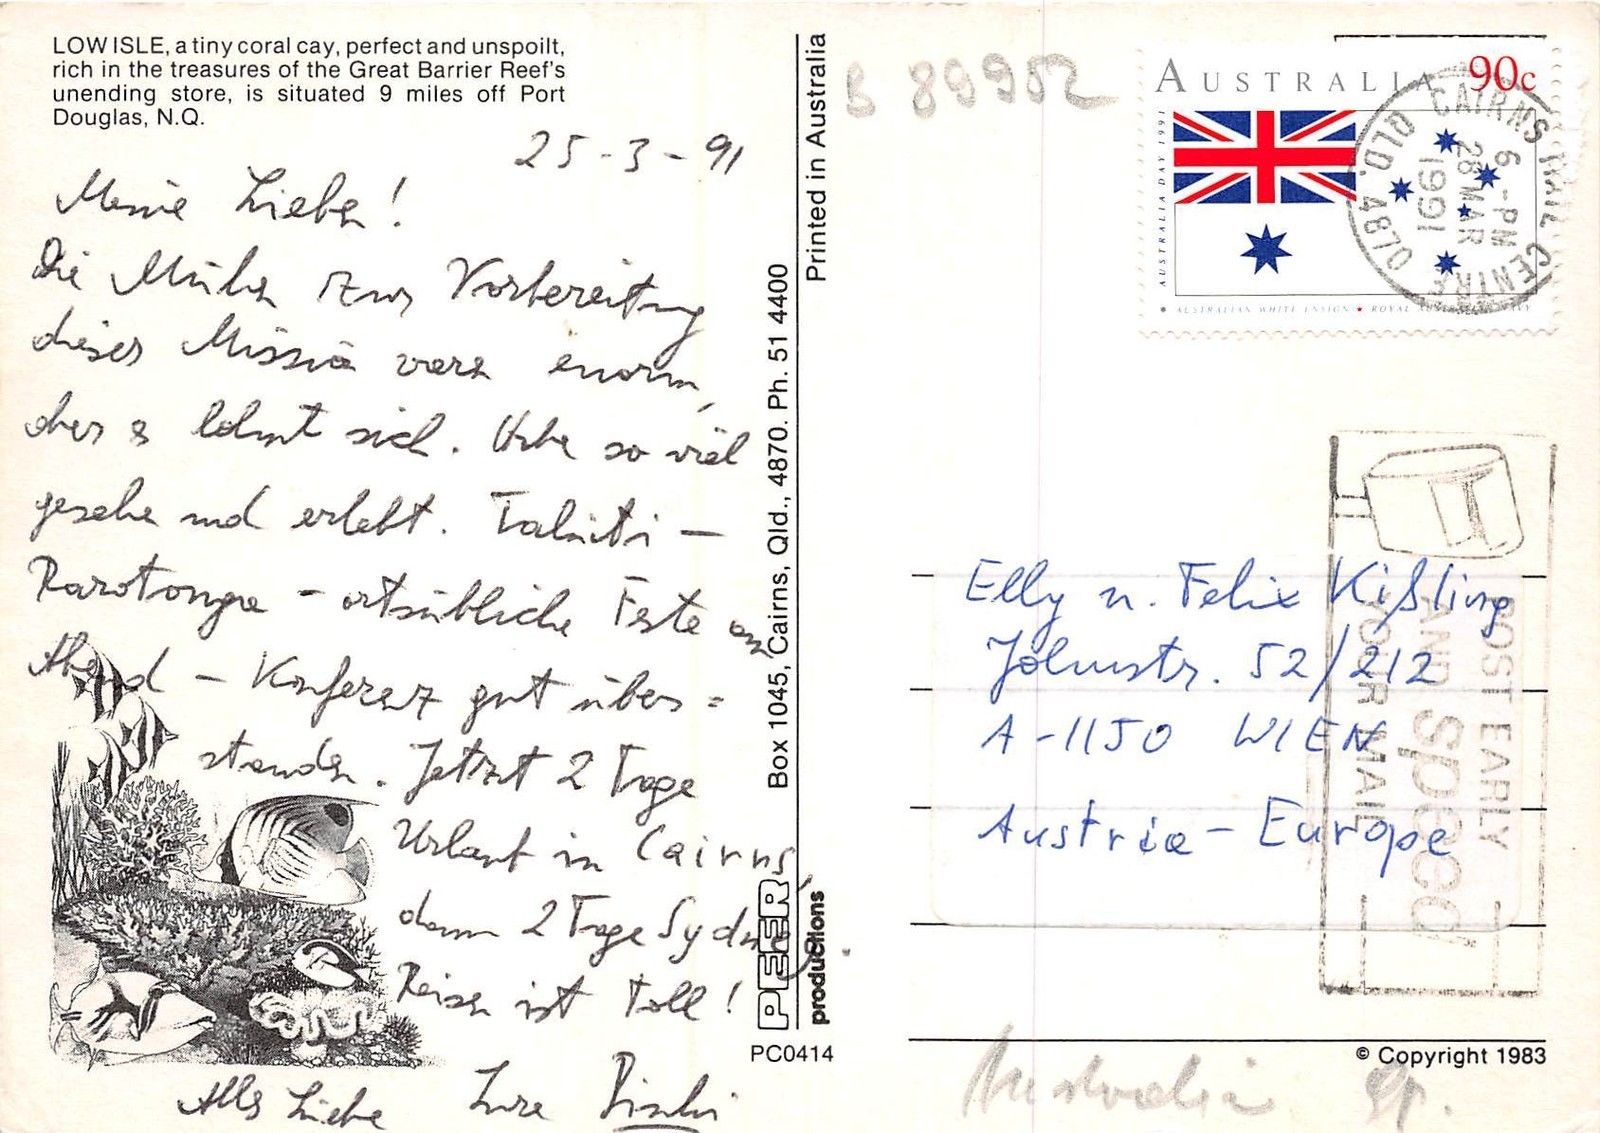 LOW ISLE, a tiny coral cay, perfect and unspoilt,
rich in the treasures of the Great Barrier Reef's
unending store, is situated 9 miles off Port
Douglas, N.Q.
25-3-91
Meine Lieben!
Die Mühen zur Vorbereitung
dieser Mission waren enorm,
aber es lohnt sich. Habe so viel
gesehen und erlebt. Tahiti -
Rarotonga - ortsübliche Feste am
Abend - Konferenz gut über=
standen. Jetzt 2 Tage
Urlaub in Cairns,
dann 2 Tage Sydney.
Reisen ist toll!
Alles Liebe Eure
Printed in Australia
Box 1045, Cairns, Qld., 4870. Ph. 51 4400
PEER
productions
PC0414
B 89952
AUSTRALIA 90c
AUSTRALIA DAY 1991
AUSTRALIAN WHITE ENSIGN ★ ROYAL AUSTRALIAN NAVY
CAIRNS MAIL CENTRE
6-PM
28 MAR
1991
QLD. 4870
POST EARLY
AND speed
YOUR MAIL
Elly u. Felix Kißling
Johnstr. 52/212
A-1150 WIEN
Austria - Europe
© Copyright 1983
Australien